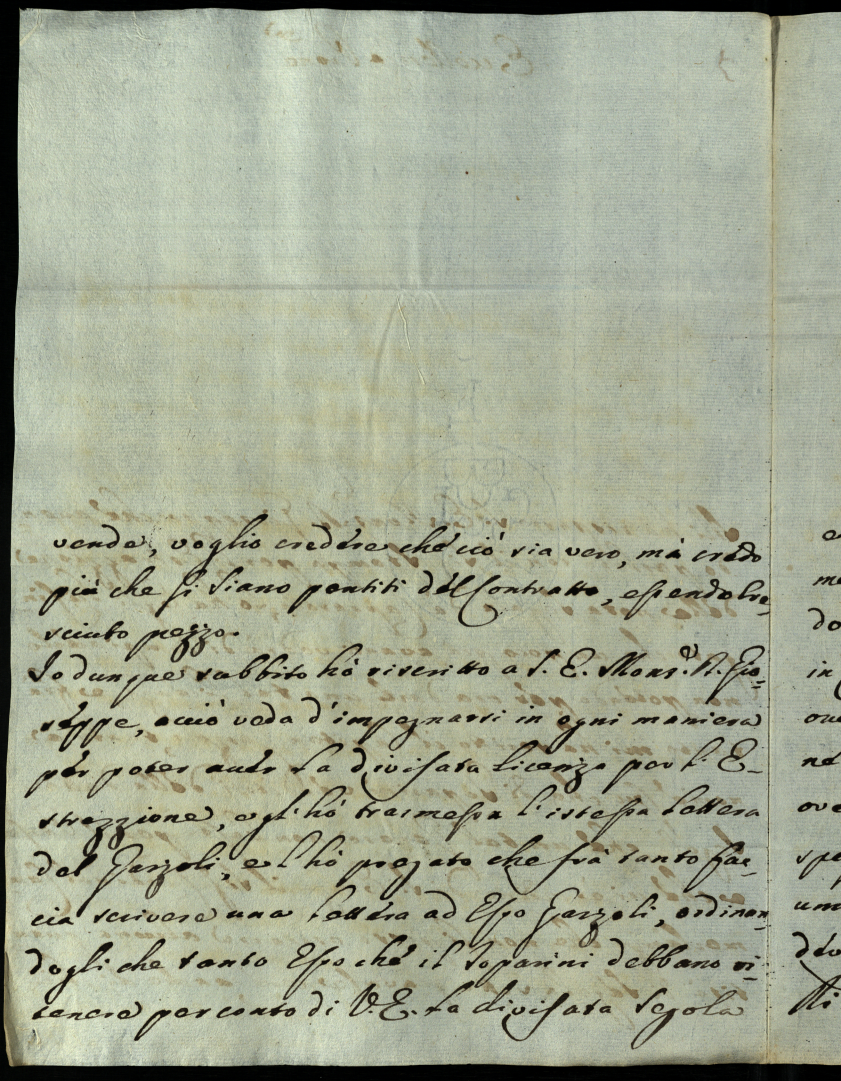 vende, voglio credere che ciò sia vero, mà crédo
più che si siano pentiti dél Contratto, essendo cre-
sciuto pezzo.
Io dunque subbito hò riscritto a S. E. Mons.e A. Gio-
séppe, acciò veda d'impegnarsi in ogni maniera
pér poter avér la divisata licenza per l'E-
strazzione, e gl'hò trasmessa l'istessa lettera
del Garzoli, e l'hò pregato che frà tanto fac-
cia scrivere una lettéra ad Esso Garzoli, ordinan-
dogli che tanto Esso ché il Soparini debbano ri-
tenere per conto di V. E. la divisata Segola